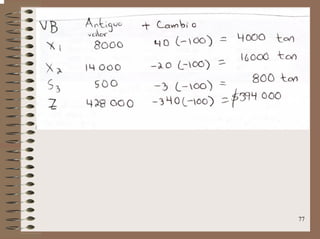 VB Antiguo valor + Cambio
X1 8000 40 (-100) = 4000 ton
X2 14000 -20 (-100) = 16000 ton
S3 500 -3 (-100) = 800 ton
Z 428 000 -340 (-100) = $394 000
77